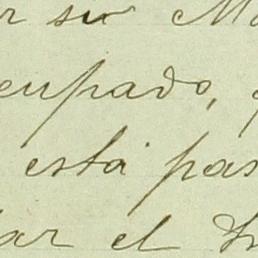 r su M
cupado,
está pas
ar el